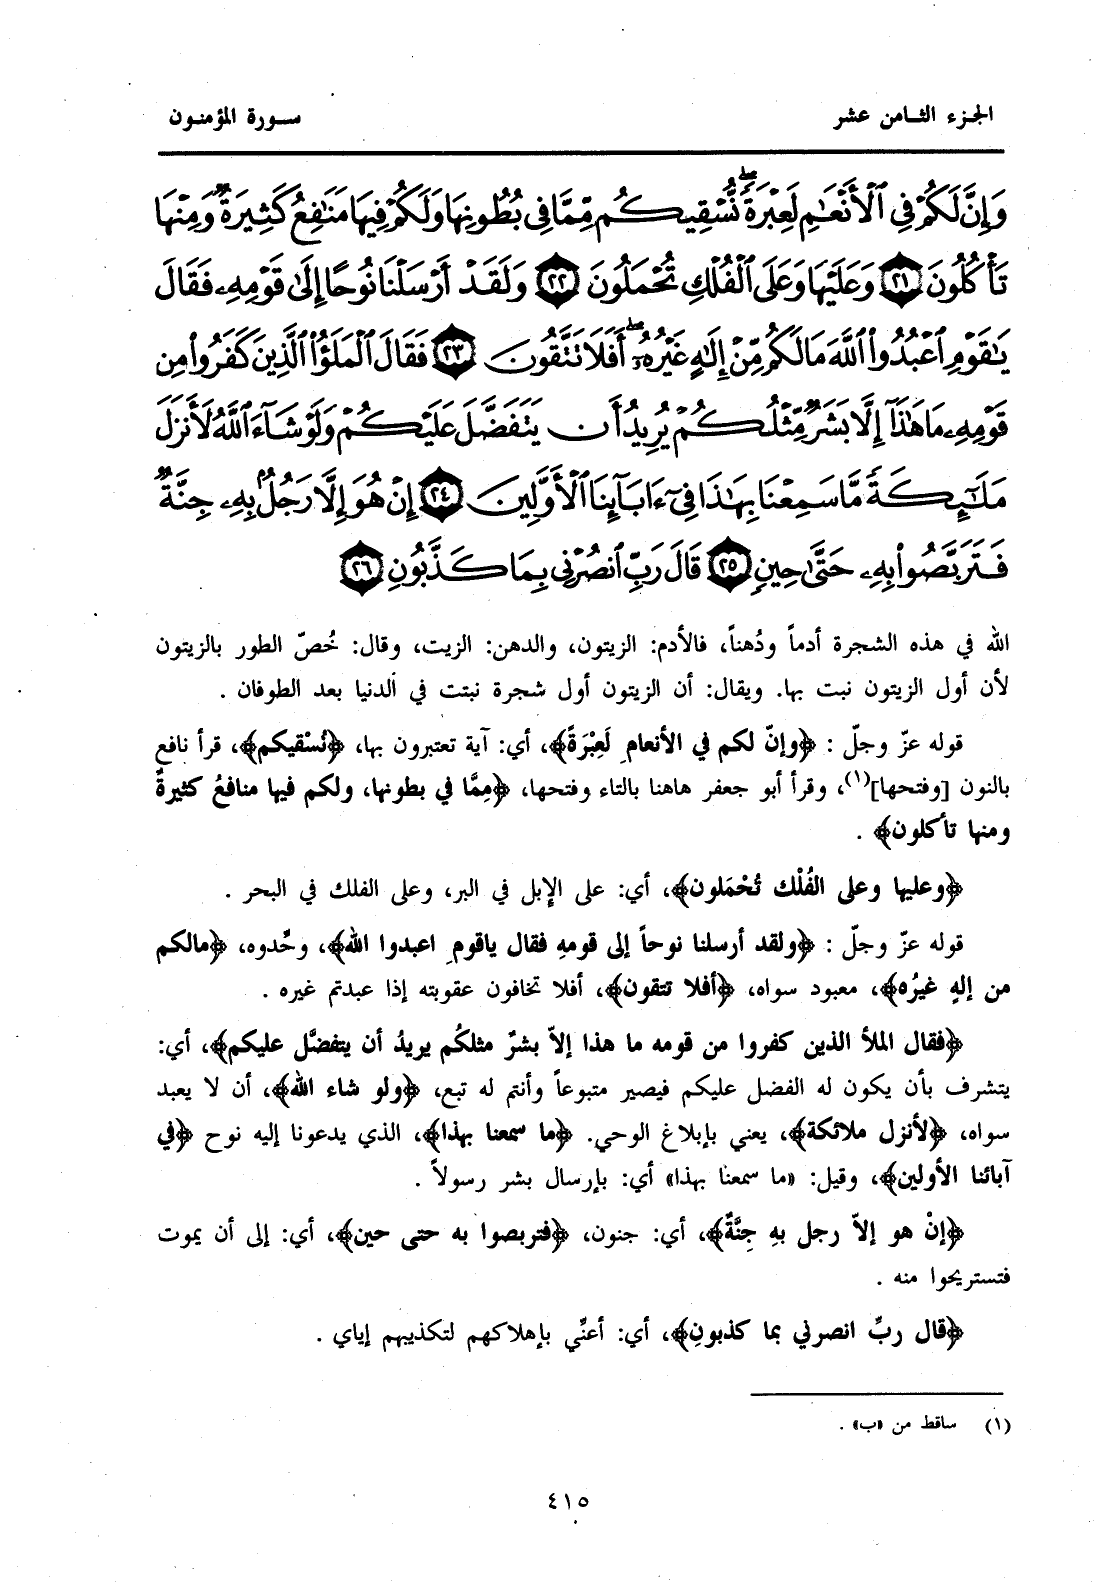 الجزء الثامن عشر
سورة المؤمنون
وَإِنَّ لَكُمْ فِي ٱلْأَنْعَٰمِ لَعِبْرَةً ۖ نُّسْقِيكُم مِّمَّا فِي بُطُونِهَا وَلَكُمْ فِيهَا مَنَٰفِعُ كَثِيرَةٌ وَمِنْهَا
تَأْكُلُونَ ٢١ وَعَلَيْهَا وَعَلَى ٱلْفُلْكِ تُحْمَلُونَ ٢٢ وَلَقَدْ أَرْسَلْنَا نُوحًا إِلَىٰ قَوْمِهِۦ فَقَالَ
يَٰقَوْمِ ٱعْبُدُوا۟ ٱللَّهَ مَا لَكُم مِّنْ إِلَٰهٍ غَيْرُهُۥٓ ۖ أَفَلَا تَتَّقُونَ ٢٣ فَقَالَ ٱلْمَلَؤُا۟ ٱلَّذِينَ كَفَرُوا۟ مِن
قَوْمِهِۦ مَا هَٰذَآ إِلَّا بَشَرٌ مِّثْلُكُمْ يُرِيدُ أَن يَتَفَضَّلَ عَلَيْكُمْ وَلَوْ شَآءَ ٱللَّهُ لَأَنزَلَ
مَلَٰٓئِكَةً مَّا سَمِعْنَا بِهَٰذَا فِيٓ ءَابَآئِنَا ٱلْأَوَّلِينَ ٢٤ إِنْ هُوَ إِلَّا رَجُلٌۢ بِهِۦ جِنَّةٌ
فَتَرَبَّصُوا۟ بِهِۦ حَتَّىٰ حِينٍ ٢٥ قَالَ رَبِّ ٱنصُرْنِي بِمَا كَذَّبُونِ ٢٦
الله في هذه الشجرة أدماً ودُهناً، فالأدم: الزيتون، والدهن: الزيت، وقال: خُصّ الطور بالزيتون
لأن أول الزيتون نبت بها. ويقال: أن الزيتون أول شجرة نبتت في الدنيا بعد الطوفان .
قوله عزّ وجلّ : ﴿وإنّ لكم في الأنعامِ لَعِبْرَةً﴾، أي: آية تعتبرون بها، ﴿نُسْقيكم﴾، قرأ نافع
بالنون [وفتحها](١)، وقرأ أبو جعفر هاهنا بالتاء وفتحها، ﴿مِمَّا في بطونها، ولكم فيها منافعُ كثيرةٌ
ومنها تأكلون﴾ .
﴿وعليها وعلى الفُلْك تُحْمَلون﴾، أي: على الإبل في البر، وعلى الفلك في البحر .
قوله عزّ وجلّ : ﴿ولقد أرسلنا نوحاً إلى قومهِ فقال ياقومِ اعبدوا الله﴾، وحِّدوه، ﴿مالكم
من إلهٍ غيرُه﴾، معبود سواه، ﴿أفلا تتقون﴾، أفلا تخافون عقوبته إذا عبدتم غيره .
﴿فقال الملأ الذين كفروا من قومه ما هذا إلاّ بشرٌ مثلكُم يريدُ أن يتفضَّل عليكم﴾، أي:
يتشرف بأن يكون له الفضل عليكم فيصير متبوعاً وأنتم له تبع، ﴿ولو شاء الله﴾، أن لا يعبد
سواه، ﴿لأنزل ملائكة﴾، يعني بإبلاغ الوحي. ﴿ما سمعنا بهذا﴾، الذي يدعونا إليه نوح ﴿في
آبائنا الأولين﴾، وقيل: «ما سمعنا بهذا» أي: بإرسال بشر رسولاً .
﴿إنْ هو إلاّ رجل بهِ جِنَّةٌ﴾، أي: جنون، ﴿فتربصوا به حتى حين﴾، أي: إلى أن يموت
فتستريحوا منه .
﴿قال ربِّ انصرني بما كذبونِ﴾، أي: أعنِّي بإهلاكهم لتكذيبهم إياي .
(١) ساقط من «ب» .
٤١٥